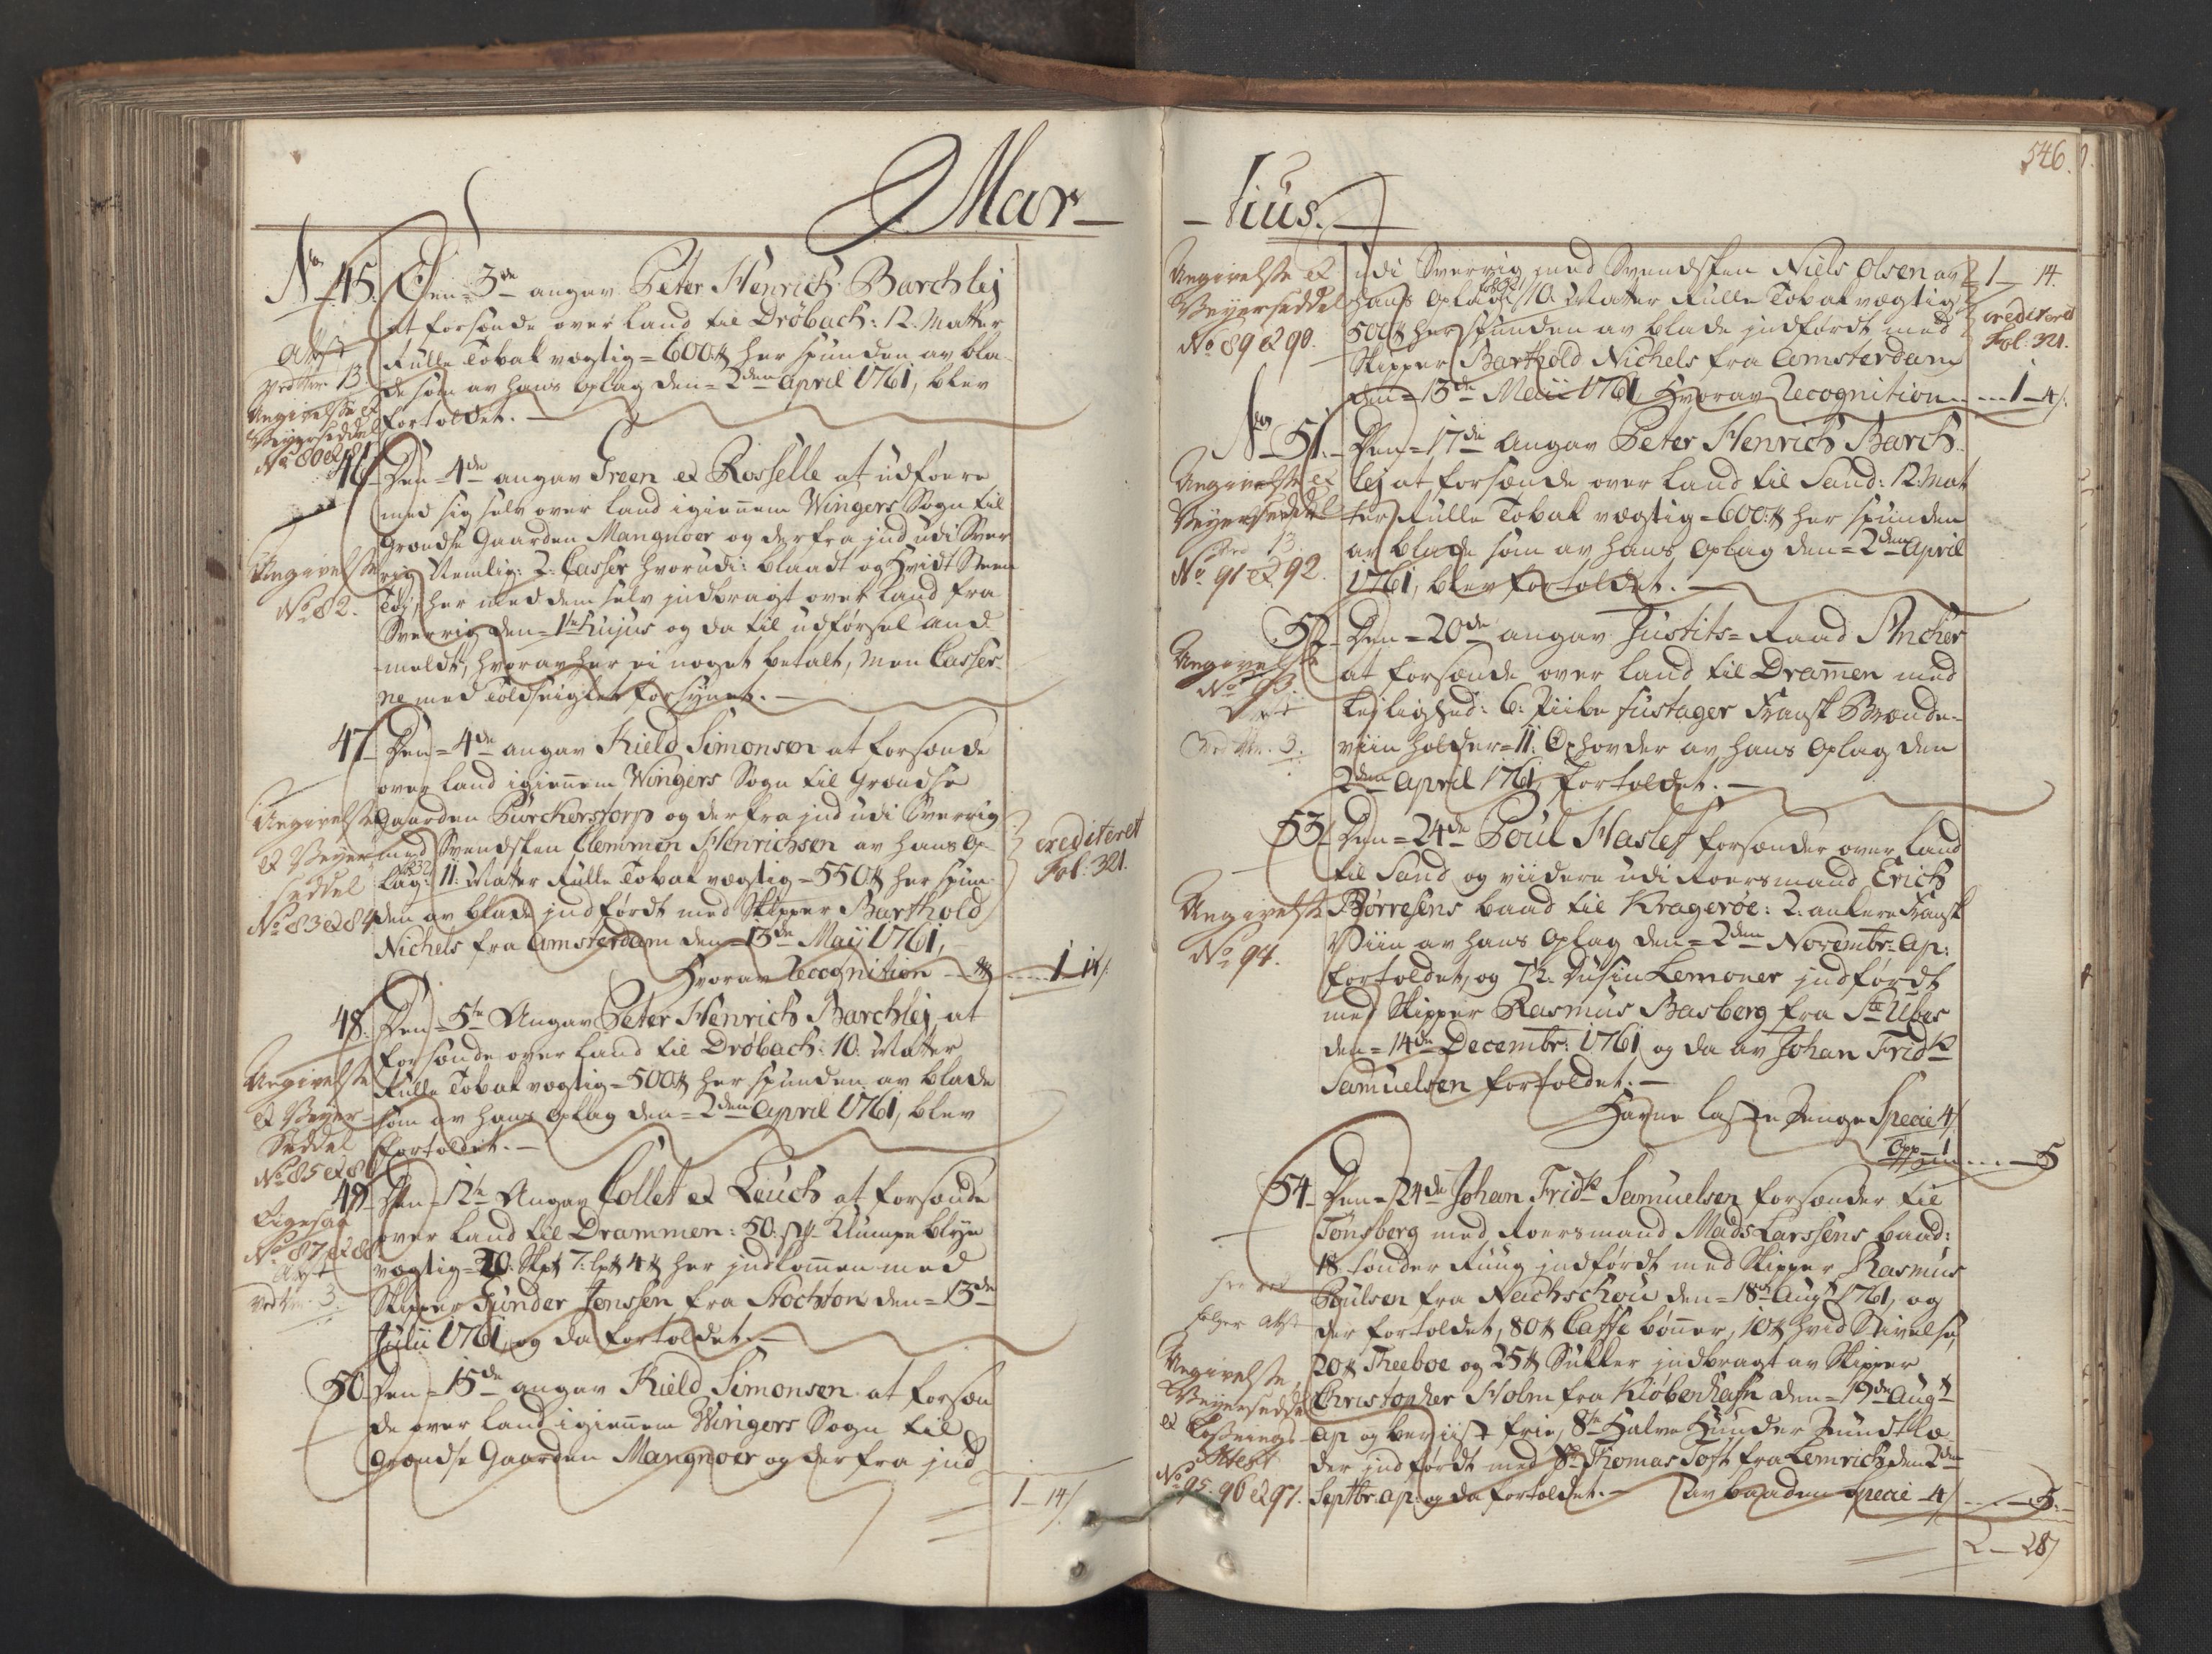 Mar-
No 45. Den 3de angav Peter Henrich Barchlej
at forsende over Land til Drøbach: 12. Matter
Rulle Tobak vægtig = 600 ℔ her spunden av Bla-
de som av hans Oplag den = 2den April 1761, blev
fortoldet.
Attst
ved Nr. 13.
Angivelse et
Veyerseddel
No. 80 et 81
46 Den = 4de angav Green et Rosselle at udføere
med sig selv over Land igiennem Wingers Sogn til
Grændse Gaarden Mangnoer og derfra ind udi Sver-
rig Nemlig: 2. Casser hvorudi: blaadt og Hvidt Steen
Tøy, her med dem selv indbragt over Land fra
Sverrig den = 1te hujus og da til udførsel and-
meldt, hvorav her ei noget betalt, men Casser-
ne med Toldseigler forsynet.
Angivelse
No. 82.
47 Den = 4de angav Kield Simonsen at forsende
over Land igiennem Wingers Sogn til Grændse
Gaarden Burcherstorp og derfra ind udi Sverrig
med Svendsken Clemmen Henrichsen av hans Op-
lag: 11: Matter Rulle Tobak vægtig = 550 ℔ her spun-
den av Blade indført med Skipper Barthold
Nichels fra Amsterdam den = 13de Maij 1761,
Hvorav Recognition 1 14/
Angivelse
et Veyer-
seddel
No. 83 et 84
crediteret
Fol: 321.
48. Den = 5te Angav Peter Henrich Barchlej at
forsende over Land til Drøbach: 10. Matter
Rulle Tobak vægtig = 500 ℔ her spunden av Blade
som av hans Oplag den = 2den April 1761, blev
fortoldet.
Angivelse
et Veyer-
Seddel
No. 85 et 86
49 Den = 12te Angav Collet et Leuch at forsende
over Land til Drammen: 50. st. Klumpe Blye
vægtig = 20. Sk℔ 7: L℔ 4 ℔ her indkommen med
Skipper Gunder Jenssen fra Stochton den = 13de
Julii 1761, og da fortoldet.
Ligesaa
No. 87 et 88.
Attst
ved Nr. 3.
50 Den = 15de angav Kield Simonsen at forsen-
de over Land igiennem Wingers Sogn til
Grændse Gaarden Mangnoer og derfra ind
1 - 14/
546.
-tius.
udi Sverrig med Svendsken Niels Olsen av
hans Oplag 10. Matter Rulle Tobak vægtig
500 ℔ her spunden av Blade indført med
Skipper Barthold Nichels fra Amsterdam
den = 13de Maii 1761, Hvorav Recognition 1 - 4/.
Angivelse et
Veyerseddel
No. 89 et 90.
1 - 14.
crediteret
Fol: 321.
No 51. Den = 17de Angav Peter Henrich Barch-
lej at forsende over Land til Sand: 12. Mat-
ter Rulle Tobak vægtig = 600 ℔ her spunden
av Blade som av hans Oplag den = 2den April
1761, blev fortoldet.
Angivelse et
Veyerseddel
13.
No. 91 et 92.
52 Den = 20de angav Justits-Raad Ancher
at forsende over Land til Drammen med
Lejlighed: 6. Piibe fustager Fransk Brænde-
viin holder = 11. Oxhovder av hans Oplag den
2den April 1761, fortoldet.
Angivelse
No. 93.
Attst
ved Nr. 3.
53 Den = 24de Poul Haslef forsender over Land
til Sand og viidere udi Roersmand Erich
Børresens baad til Kragerøe: 2. ankere Fransk
Viin av hans Oplag den = 2den Novembr. ap:
fortoldet, og 72. Dusin Lemoner indført
med Skipper Rasmus Basberg fra St. Ubes
den = 14de Decembr: 1761 og da av Johan Fridk
Samuelsen fortoldet.
Havne Laste Penge Specie 4/
Opp 1 5
Angivelse
No. 94.
54 Den = 24de Johan Fridk Samuelsen forsender til
Tønsberg med Roersmand Mads Larssens baad:
18. tønder Ruug indført med Skipper Rasmus
Poulsen fra Nachschou den = 18de Augt 1761, og
der fortoldet, 80 ℔ Caffe bønner, 10 ℔ hvid Stivelse,
20 ℔ Theeboe og 25 ℔ Sukker indbragt av Skipper
Christopher Holm fra Kiøbenhafn den = 19de Augt
ap og beviist frie, 8te Halve Hunder
der indført med Sr. Thomas Toft fra Lemvich den 2den
Septbr. ap: og da fortoldet. av baaden specie 4/ 5.
følger attst
Angivelse,
Veyerseddel
et Losnings-
Attest
No. 95. 96 et 97.
2 - 28/